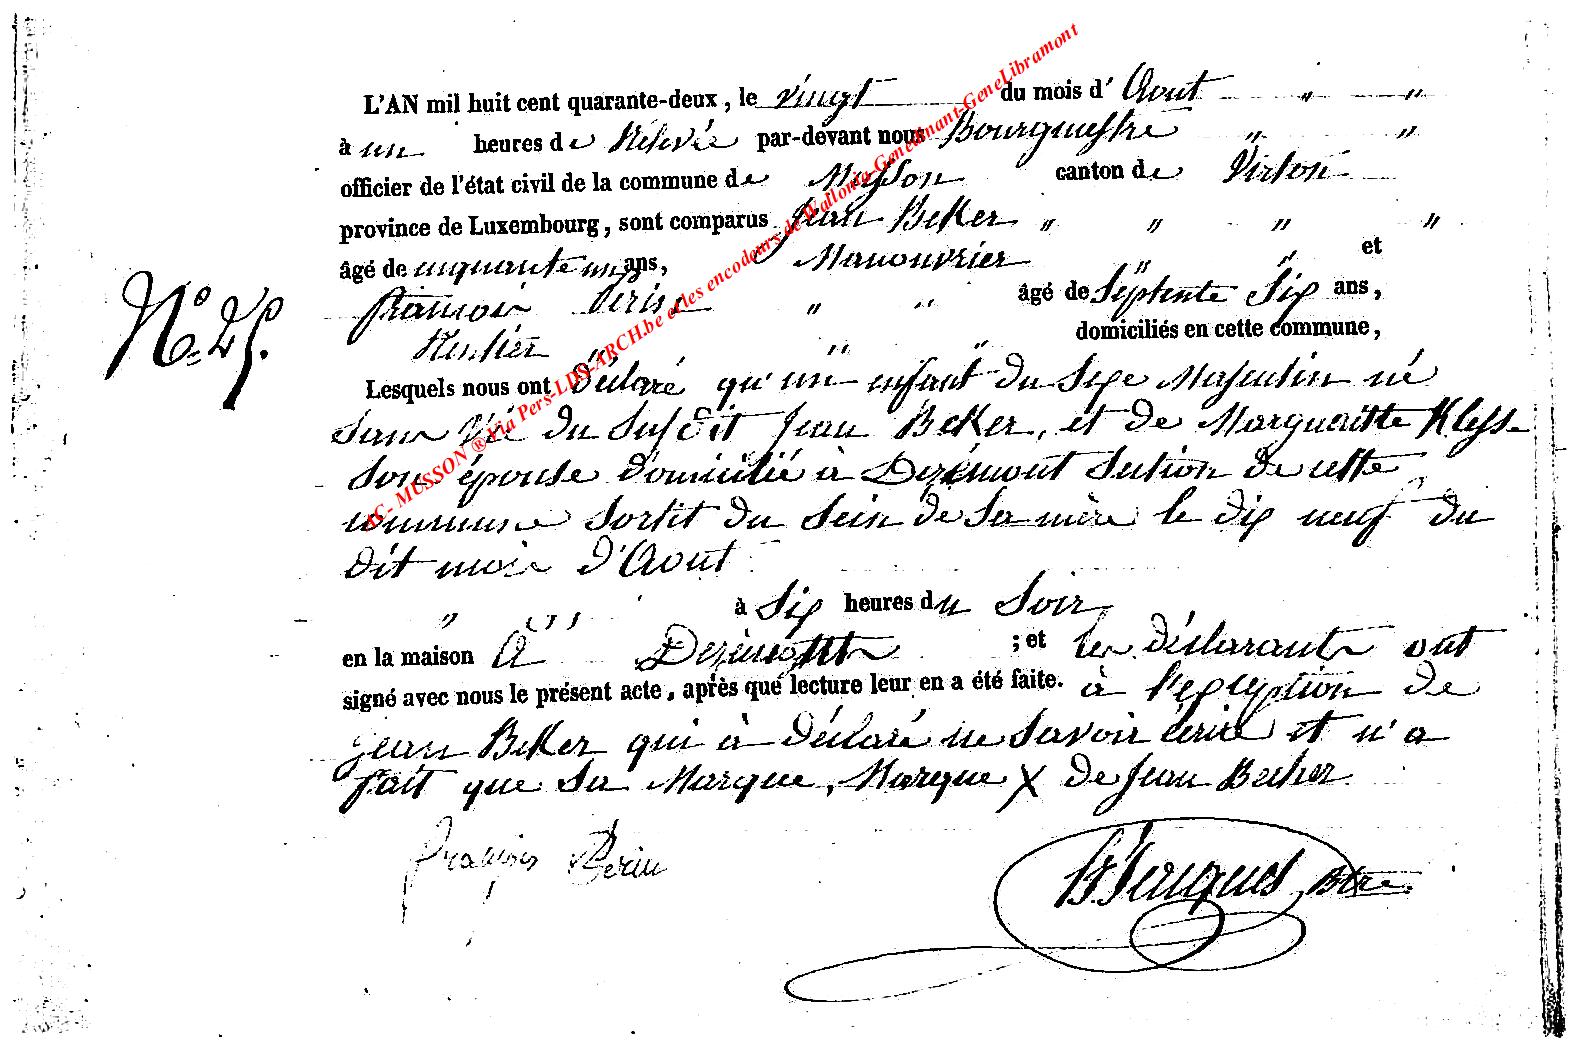 L'AN mil huit cent quarante-deux, le vingt du mois d'Aout " "
à un heures de Rélevée par-devant nous Bourguestre " "
officier de l'état civil de la commune de Musson canton de Virton
province de Luxembourg, sont comparus Jean Beker " " " "
âgé de cinquante un ans, Manouvrier " " et
francois Perin " " âgé de Septente Six ans,
Rentier " " " domiciliés en cette commune,
N° 25.
Lesquels nous ont Déclaré qu'un enfant du Sexe Masculin né
Sans Vie du Susdit Jean Beker, et de Marguaritte Kless
Son épouse domicilié à Dezémont Section de cette
commune Sortit du Sein de Sa mère le dix neuf du
dit mois d'Aout
" " à Six heures du Soir
en la maison à Dezémont ; et les déclarants ont
signé avec nous le présent acte, après que lecture leur en a été faite. à l'exception de
jean Beker qui à déclaré ne Savoir écrire et n'a
fait que Sa Marque, Marque X de Jean Becker
françois Perin
Jacques Btre.
SC- MUSSON ® Via Pers-LDS-ARCH.be et les encodeurs de Wallonia-GeneDinant-GeneLibramont